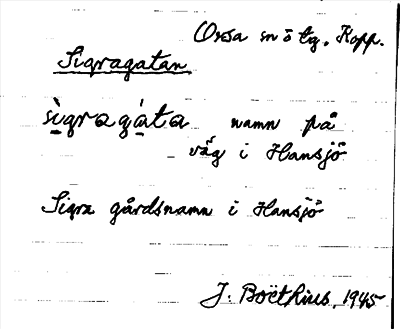 Orsa snötg, Kopp.
Sigragatan
sìgragáta namn på
väg i Hansjö
Sigra gårdsnamn i Hansjö
J. Boëthius, 1945